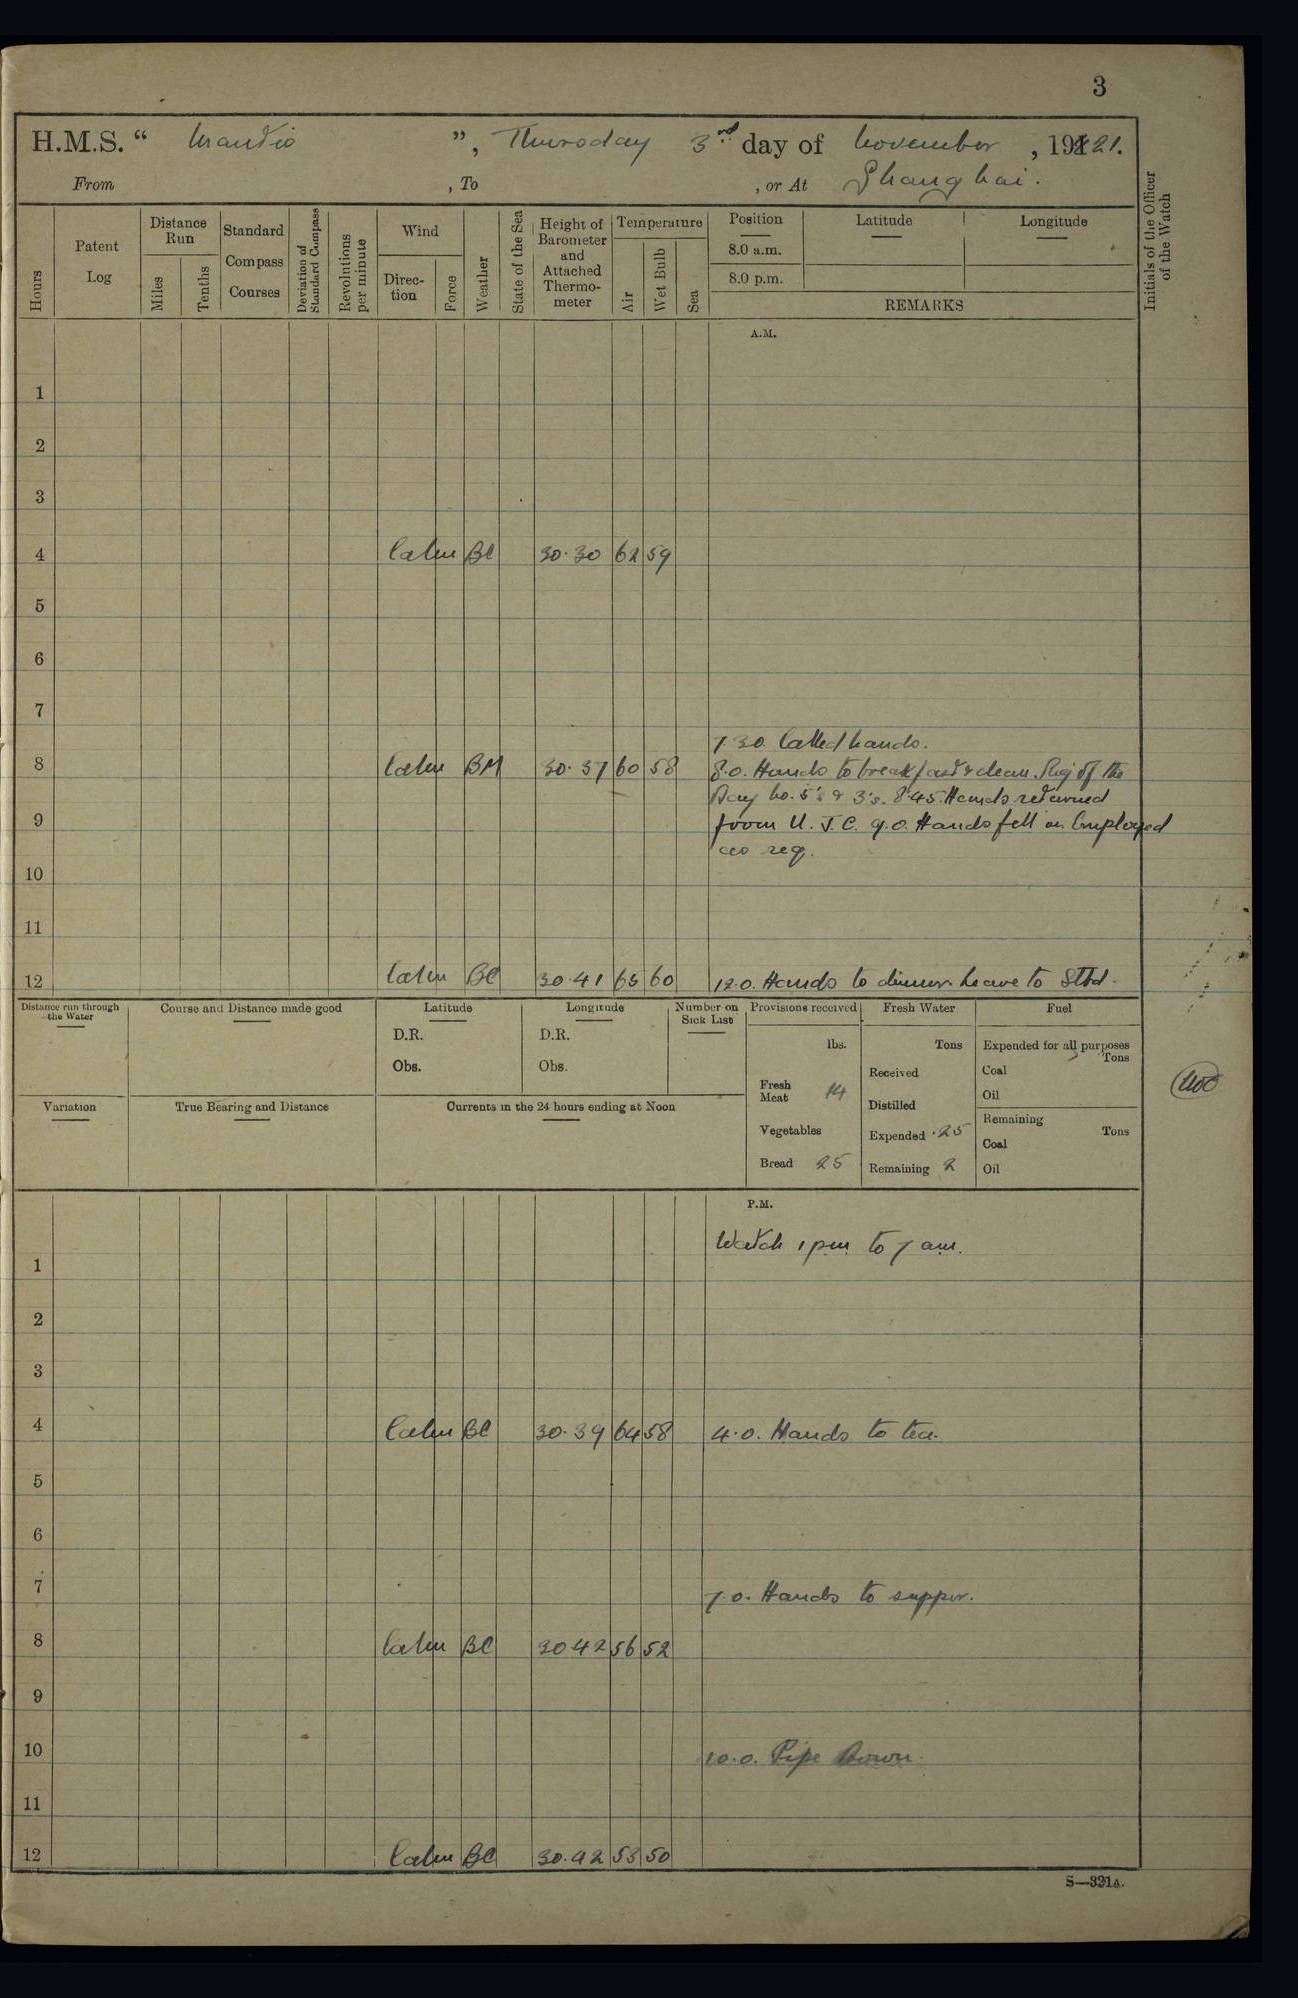 3
H.M.S. “ Mantis ”, Thursday 3rd day of November, 1921.
From , To , or At Shanghai.
Hours
Patent Log
Distance Run
Miles
Tenths
Standard Compass Courses
Deviation of Standard Compass
Revolutions per minute
Wind
Direc-tion
Force
Weather
State of the Sea
Height of Barometer and Attached Thermo-meter
Temperature
Air
Wet Bulb
Sea
Position Latitude Longitude
8.0 a.m.
8.0 p.m.
REMARKS
Initials of the Officer of the Watch
A.M.
1
2
3
4 Calm BC 30.30 62 59
5
6
7
7.30. Called hands.
8 Calm BM 30.37 60 58 8.0. Hands to breakfast & clean. Rig of the
Day No. 5's & 3's. 8.45. Hands returned
9 from U. J. C. 9.0. Hands fell in Employed
as req.
10
11
12 Calm BC 30.41 65 60 12.0. Hands to dinner. Leave to Stbd.
Distance run through the Water
Course and Distance made good
Latitude
D.R.
Obs.
Longitude
D.R.
Obs.
Number on Sick List
Provisions received
lbs.
Fresh Meat 14
Vegetables
Bread 25
Fresh Water
Tons
Received
Distilled
Expended .25
Remaining 2
Fuel
Expended for all purposes
Tons
Coal
Oil
Remaining
Tons
Coal
Oil
Variation
True Bearing and Distance
Currents in the 24 hours ending at Noon
P.M.
Watch 1 pm to 7 am.
1
2
3
4 Calm BC 30.39 64 58 4.0. Hands to tea.
5
6
7 7.0. Hands to supper.
8 Calm BC 30 42 56 52
9
10 10.0. Pipe Down.
11
12 Calm BC 30.42 53 50
S—321A.